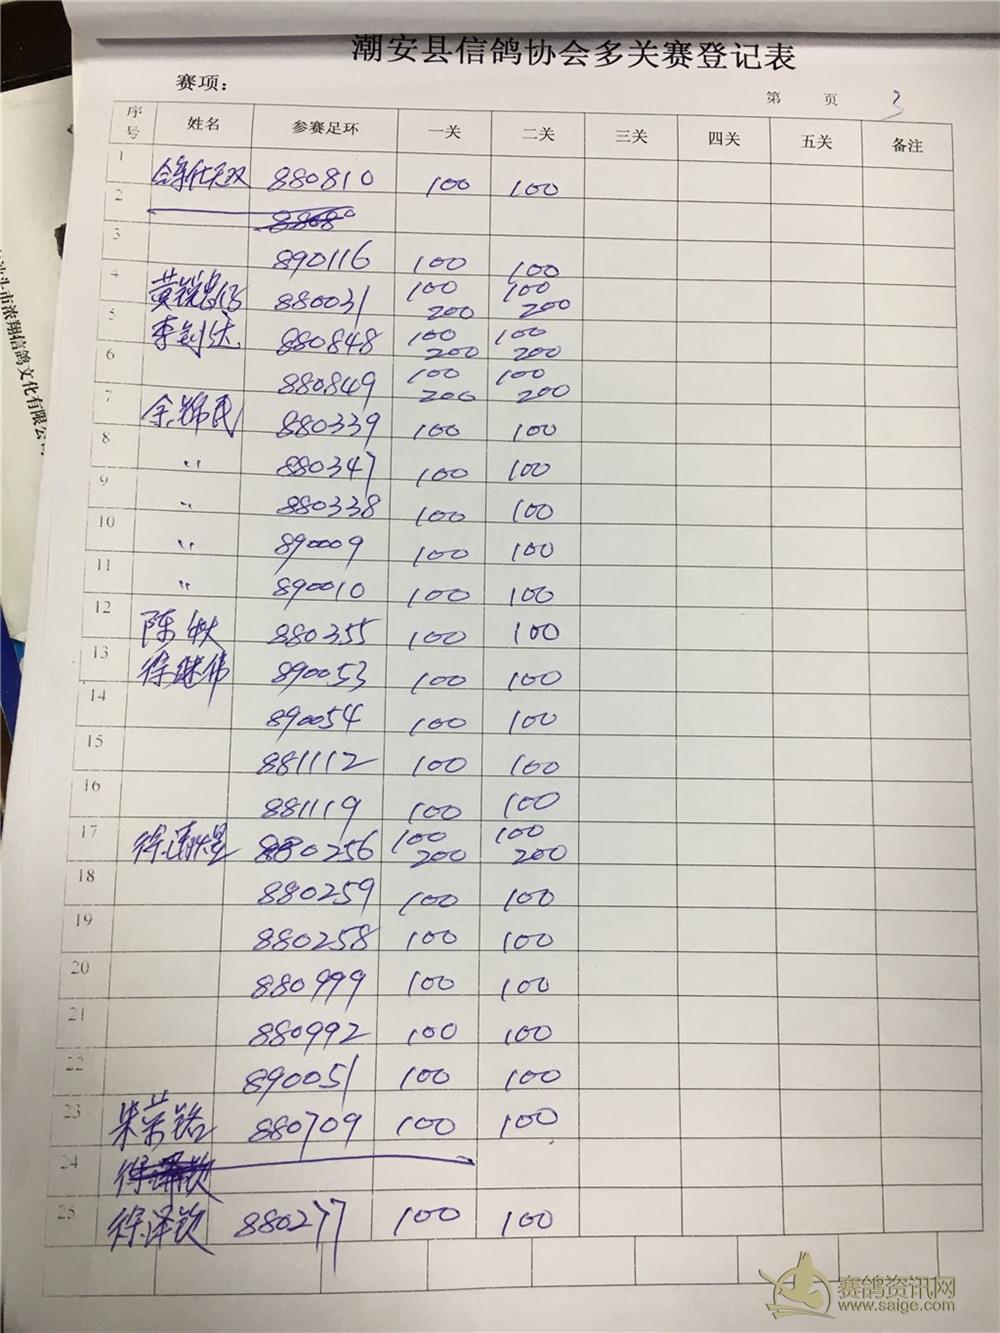 潮安县信鸽协会多关赛登记表
赛项：
第 页 3
序号 姓名 参赛足环 一关 二关 三关 四关 五关 备注
1 880810 100 100
2
3 890116 100 100
4 880031 100 200 100 200
5 李剑达 880848 100 200 100 200
6 880849 100 200 100 200
7 余锦民 880339 100 100
8 〃 880347 100 100
9 〃 880338 100 100
10 〃 890009 100 100
11 〃 890010 100 100
12 陈 880355 100 100
13 徐继伟 890053 100 100
14 890054 100 100
15 881112 100 100
16 881119 100 100
17 徐 880256 100 200 100 200
18 880259 100 100
19 880258 100 100
20 880999 100 100
21 880992 100 100
22 890051 100 100
23 朱荣铭 880709 100 100
24
25 徐泽钦 880277 100 100
汕头市浓翔信鸽文化有限公
赛鸽资讯网
www.saige.com